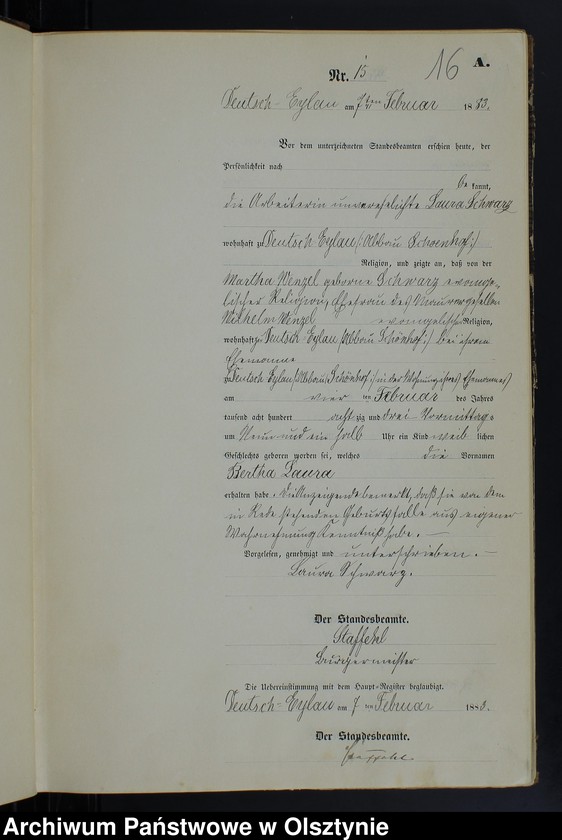 16 A.
Nr. 15
Deutsch-Eylau am 7ten Februar 1883.
Vor dem unterzeichneten Standesbeamten erschien heute, der
Persönlichkeit nach
be kannt,
die Arbeiterin unverehelichte Laura Schwarz
wohnhaft zu Deutsch Eylau /:Abbau Schoenhof:/
Religion, und zeigte an, daß von der
Martha Wenzel geborne Schwarz evange-
lischer Religion, Ehefrau des Maurergesellen
Wilhelm Wenzel evangelischer Religion,
wohnhaft zu Deutsch-Eylau /:Abbau Schönhof:/ bei ihrem
Ehemanne
zu Deutsch Eylau /:Abbau Schönhof:/ in der Wohnung ihres Ehemannes
am vier ten Februar des Jahres
tausend acht hundert acht zig und drei Vormittags
um Neun und ein halb Uhr ein Kind weib lichen
Geschlechts geboren worden sei, welches die Vornamen
Bertha Laura
erhalten habe. Die Anzeigende bemerkt, daß sie von dem
in Rede stehenden Geburtsfalle aus eigener
Wahrnehmung Kenntniß habe. —
Vorgelesen, genehmigt und unterschrieben. —
Laura Schwarz.
Der Standesbeamte.
Staffehl
Bürgermeister
Die Uebereinstimmung mit dem Haupt-Register beglaubigt.
Deutsch-Eylau am 7 ten Februar 1883.
Der Standesbeamte.
Archiwum Państwowe w Olsztynie